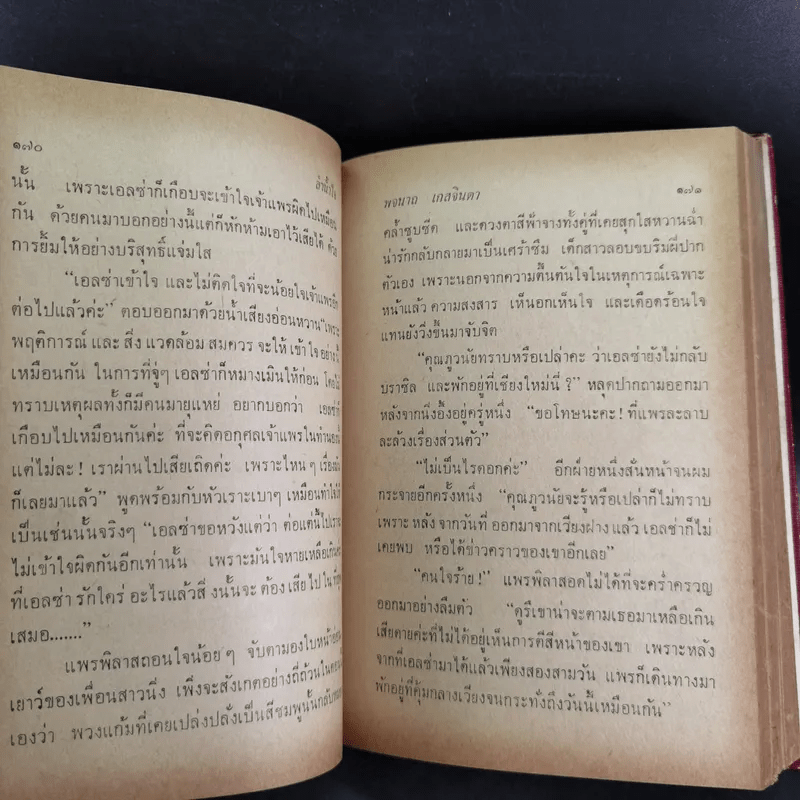 ๑๗๐
นั้น เพราะเอลซ่าก็เกือบจะเข้าใจเจ้าแพรผิดไปเหมือน
กัน ด้วยคนมาบอกอย่างนี้แต่ก็หักห้ามเอาไว้เสียได้ ด้วย
การยิ้มให้อย่างบริสุทธิ์แจ่มใส
“เอลซ่าเข้าใจ และไม่ติดใจที่จะน้อยใจเจ้าแพรอีก
ต่อไปแล้วค่ะ” ตอบออกมาด้วยน้ำเสียงอ่อนหวาน “เพราะ
พฤติการณ์ และ สิ่ง แวดล้อม สมควร จะให้ เข้าใจ อย่างนั้น
เหมือนกัน ในการที่จู่ๆ เอลซ่าก็หมางเมินให้ก่อน โดยไม่
ทราบเหตุผลทั้งก็มีคนมายุแหย่ อยากบอกว่า เอลซ่าก็
เกือบไปเหมือนกันค่ะ ที่จะคิดอกุศลเจ้าแพรในทำนองนี้
แต่ไม่ละ! เราผ่านไปเสียเถิดค่ะ เพราะไหนๆ เรื่องมัน
ก็เลยมาแล้ว” พูดพร้อมกับหัวเราะเบาๆ เหมือนทำให้
เป็นเช่นนั้นจริงๆ “เอลซ่าขอหวังแต่ว่า ต่อแต่นี้ไปเรา
ไม่เข้าใจผิดกันอีกเท่านั้น เพราะมันใจหายเหลือเกินค่ะ
ที่เอลซ่า รักใคร่ อะไรแล้วสิ่งนั้นจะ ต้อง เสีย ไป ใน ที่สุด
เสมอ.......”
แพรพิลาสถอนใจน้อยๆ จับตามองใบหน้า
เยาว์ของเพื่อนสาวนิ่ง เพิ่งจะสังเกตอย่างถี่ถ้วนใน
เองว่า พวงแก้มที่เคยเปล่งปลั่งเป็นสีชมพูนั้นกลับ
พจมาถ เกสจินดา
๑๗๑
คล้ำซูบซีด และดวงตาสีฟ้าจางทั้งคู่ที่เคยสุกใสหวานฉ่ำ
น่ารักกลับกลายมาเป็นเศร้าซึม เด็กสาวลอบขบริมฝีปาก
ตัวเอง เพราะนอกจากความตื้นตันใจในเหตุการณ์เฉพาะ
หน้าแล้ว ความสงสาร เห็นอกเห็นใจ และเดือดร้อนใจ
แทนยังวิ่งขึ้นมาจับจิต
“คุณภูวนัยทราบหรือเปล่าคะ ว่าเอลซ่ายังไม่กลับ
บราซิล และพักอยู่ที่เชียงใหม่นี่ ?” หลุดปากถามออกมา
หลังจากนิ่งอึ้งอยู่ครู่หนึ่ง “ขอโทษนะคะ! ที่แพรละลาบ
ละล้วงเรื่องส่วนตัว”
“ไม่เป็นไรดอกค่ะ” อีกฝ่ายหนึ่งสั่นหน้าจนผม
กระจายอีกครั้งหนึ่ง “คุณภูวนัยจะรู้หรือเปล่าก็ไม่ทราบ
เพราะ หลัง จากวันที่ ออกมาจากเวียงฝาง แล้ว เอลซ่าก็ไม่
เคยพบ หรือได้ข่าวคราวของเขาอีกเลย”
“คนใจร้าย!” แพรพิลาสอดไม่ได้ที่จะคร่ำครวญ
ออกมาอย่างลืมตัว “ดูรึเขาน่าจะตามเธอมาเหลือเกิน
เสียดายค่ะที่ไม่ได้อยู่เห็นการตีสีหน้าของเขา เพราะหลัง
จากที่เอลซ่ามาได้แล้วเพียงสองสามวัน แพรก็เดินทางมา
พักอยู่ที่คุ้มกลางเวียงจนกระทั่งถึงวันนี้เหมือนกัน”